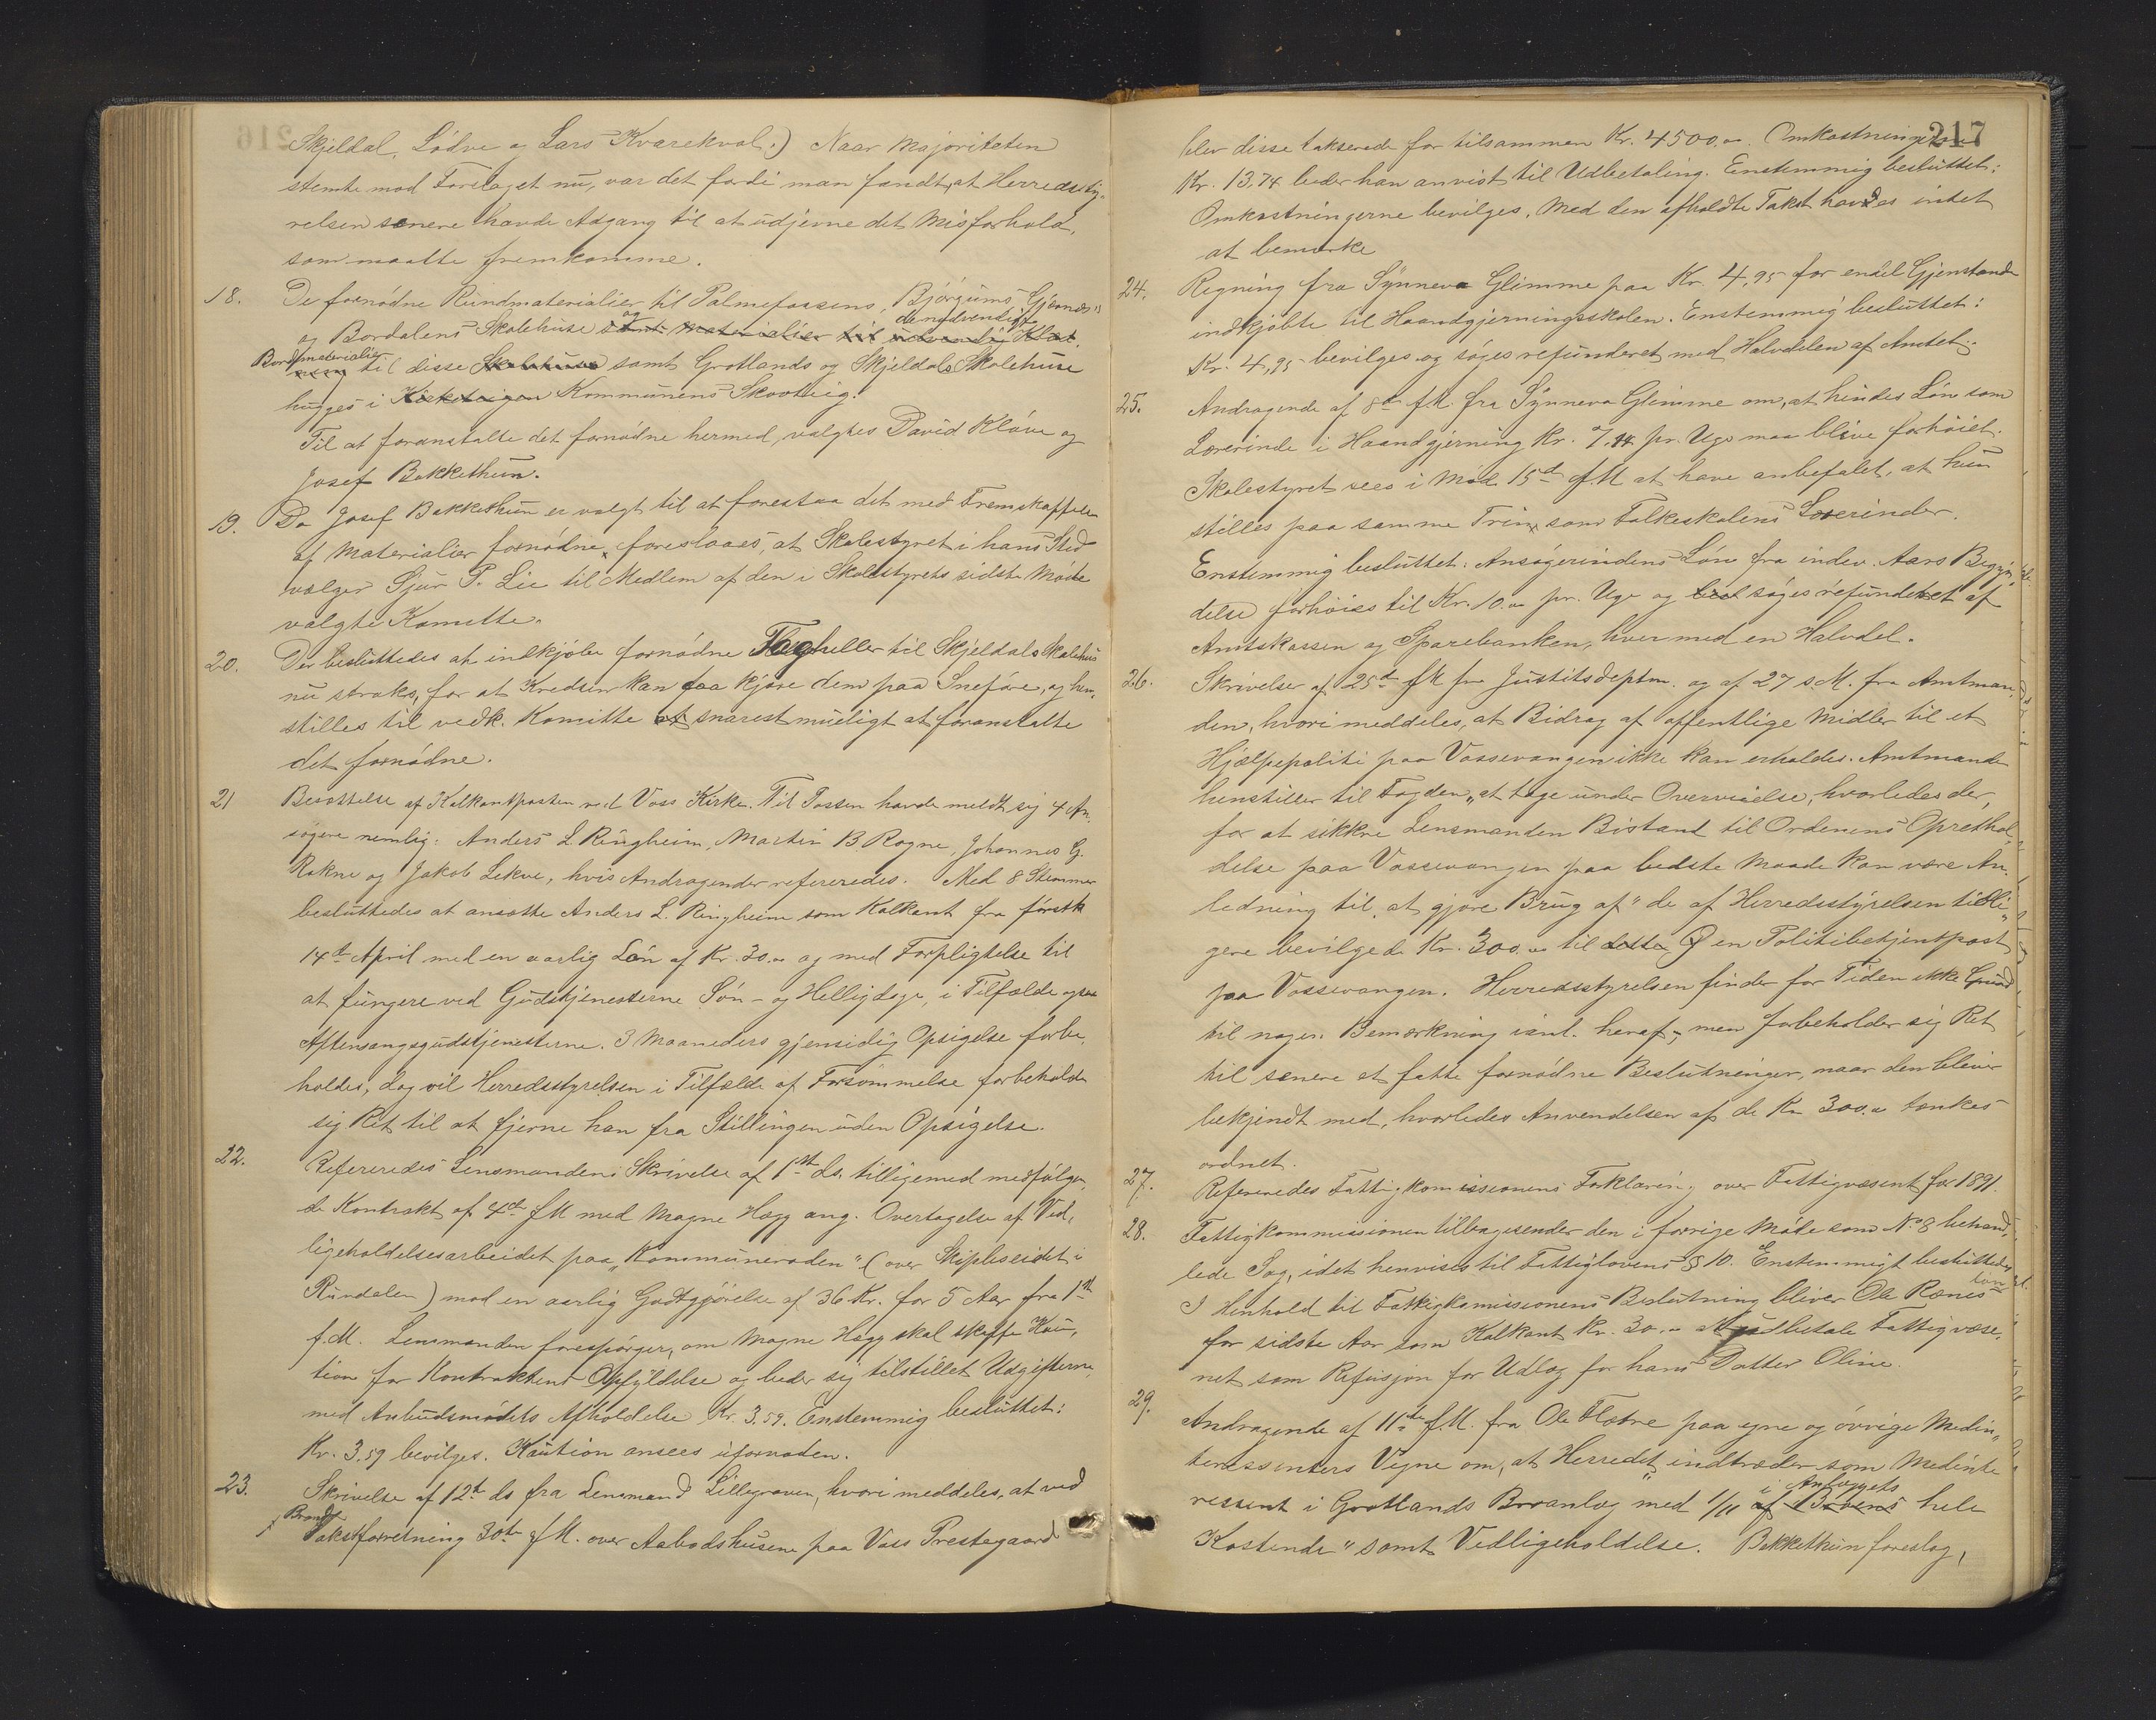 Skjeldal, Lødve og Lars Kvarekval.) Naar Majoriteten
stemte mod Forslaget nu, var det fordi man fandt, at Herredssty-
relsen senere havde Adgang til at udjevne det Misforhold,
som maatte fremkomme.
18. De fornødne Rundmaterialier til Palmefossens, Bjørgums, Gjernes
og Bordalens Skolehuse samt og Materialier til udvendig de nødvendige
Bordmaterialier til disse Skolehuse samt Grotlands og Skjeldals Skolehuse
hugges i Kommunens Skovteig.
Til at foranstalte det fornødne hermed, valgtes David Kløve og
Josef Bakkethun.
19. Da Josef Bakkethun er valgt til at forestaa det med Fremskaffelse
af Materialier fornødne, foreslaaes, at Skolestyret i hans Sted
vælger Sjur P. Lie til Medlem af den i Skolestyrets sidste Møde
valgte Komitte.
20. Der besluttedes at indkjøbe fornødne Tagheller til Skjeldals Skolehus
nu straks, for at Kredsen kan faa kjøre dem paa Sneføre, og hen-
stilles til vedk. Komitte at snarest mueligt at foranstalte
det fornødne.
21 Besættelse af Kalkantposten ved Voss Kirke. Til Posten havde meldt sig 4 An-
søgere nemlig: Anders L Ringheim, Martin B. Rogne, Johannes G.
Rokne og Jakob Lekve, hvis Andragender refereredes. Med 8 Stemmer
besluttedes at ansætte Anders L. Ringheim som Kalkant fra førstk
14de April med en aarlig Løn af Kr. 30.00 og med Forpligtelse til
at fungere ved Gudstjenesterne Søn- og Helligdage, i Tilfælde ogsaa
Aftensangsgudstjenesterne. 3 Maaneders gjensidig Opsigelse forbe-
holdes, dog vil Herredsstyrelsen i Tilfælde af Forsømmelse forbeholde
sig Ret til at fjerne han fra Stillingen uden Opsigelse.
22. Refereredes Lensmandens Skrivelse af 1st ds. tilligemed medfølgen-
de Kontrakt af 4de f M med Magne Hæg ang. Overtagelse af Ved-
ligeholdelsesarbeidet paa „Kommuneveien" (over Skipleseidet i
Rundalen) mod en aarlig Godtgjørelse af 36 Kr. for 5 Aar fra 1st
f.M. Lensmanden forespørger, om Magne Hæg skal skaffe Kau-
tion for Kontraktens Opfyldelse og beder sig tilstillet Udgifterne
med Anbudsmødets Afholdelse Kr. 3.59. Enstemmig besluttet:
Kr. 3.59 bevilges. Kaution ansees ufornøden.
23. Skrivelse af 12te ds fra Lensmand Lillegraven, hvori meddeles, at ved
Brand-
Takstforretning 30te f M. over Aabodshusene paa Voss Prestegaard
217
blev disse takserede for tilsammen Kr. 4500.00. Omkostningerne
Kr. 13,74 beder han anvist til Udbetaling. Enstemmig besluttet:
Omkostningerne bevilges. Med den afholdte Takst havdes intet
at bemærke
24. Regning fra Synneva Glimme paa Kr. 4,95 for endel Gjenstande
indkjøbte til Haandgjerningsskolen. Enstemmig besluttet:
Kr. 4,95 bevilges og søges refunderet med Halvdelen af Amtet.
25. Andragende af 8de f M. fra Synneva Glimme om, at hendes Løn som
Lærerinde i Haandgjerning Kr. 7.14 pr. Uge maa blive forhøiet.
Skolestyret sees i Møde 15de f M at have anbefalet, at hun
stilles paa samme Trin som Folkeskolens Lærerinder.
Enstemmig besluttet: Ansøgerindens Løn fra indev. Aars Begyn-
delse forhøies til Kr. 10.00 pr. Uge og søges refunderet af
Amtskassen og Sparebanken, hver med en Halvdel.
26. Skrivelser af 25de f M fra Justitsdeptm. og af 27 s.M. fra Amtman-
den, hvori meddeles, at Bidrag af offentlige Midler til et
Hjælpepoliti paa Vossevangen ikke kan erholdes. Amtmanden
henstiller til Fogden „at tage under Overveielse, hvorledes der,
for at sikkre Lensmanden Bistand til Ordenens Oprethol-
delse paa Vossevangen paa bedste Maade kan være An-
ledning til at gjøre Brug af" de af Herredsstyrelsen tidli-
gere bevilgede Kr. 300.00 til en Politibetjentpost
paa Vossevangen. Herredsstyrelsen finder for Tiden ikke Grund
til nogen Bemærkning i anl. heraf, men forbeholder sig Ret
til senere at fatte fornødne Beslutninger, naar den bliver
bekjendt med, hvorledes Anvendelsen af de Kr 300.00 tænkes
ordnet.
27. Refereredes Fattigkomissionens Forklaring over Fattigvæsenet for 1891.
28. Fattigkommissionen tilbagesender den i forrige Møde som No 8 behand-
lede Sag, idet henvises til Fattiglovens § 10. Enstemmigt besluttedes
I Henhold til Fattigkomissionens Beslutning bliver Ole Rænes Løn
for sidste Aar som Kalkant Kr. 30.00 at udbetale Fattigvæse-
net som Refusjon for Udlæg for hans Datter Oline.
29. Andragende af 11te f.M. fra Ole Flatre paa egne og øvrige Medin-
teressenters Vegne om, at Herredet „indtræder som Medinte-
ressent i Grotlands Broanlæg med 1/11 i Anlæggets hele
Kostende" samt Vedligeholdelse. Bakkethun foreslog,